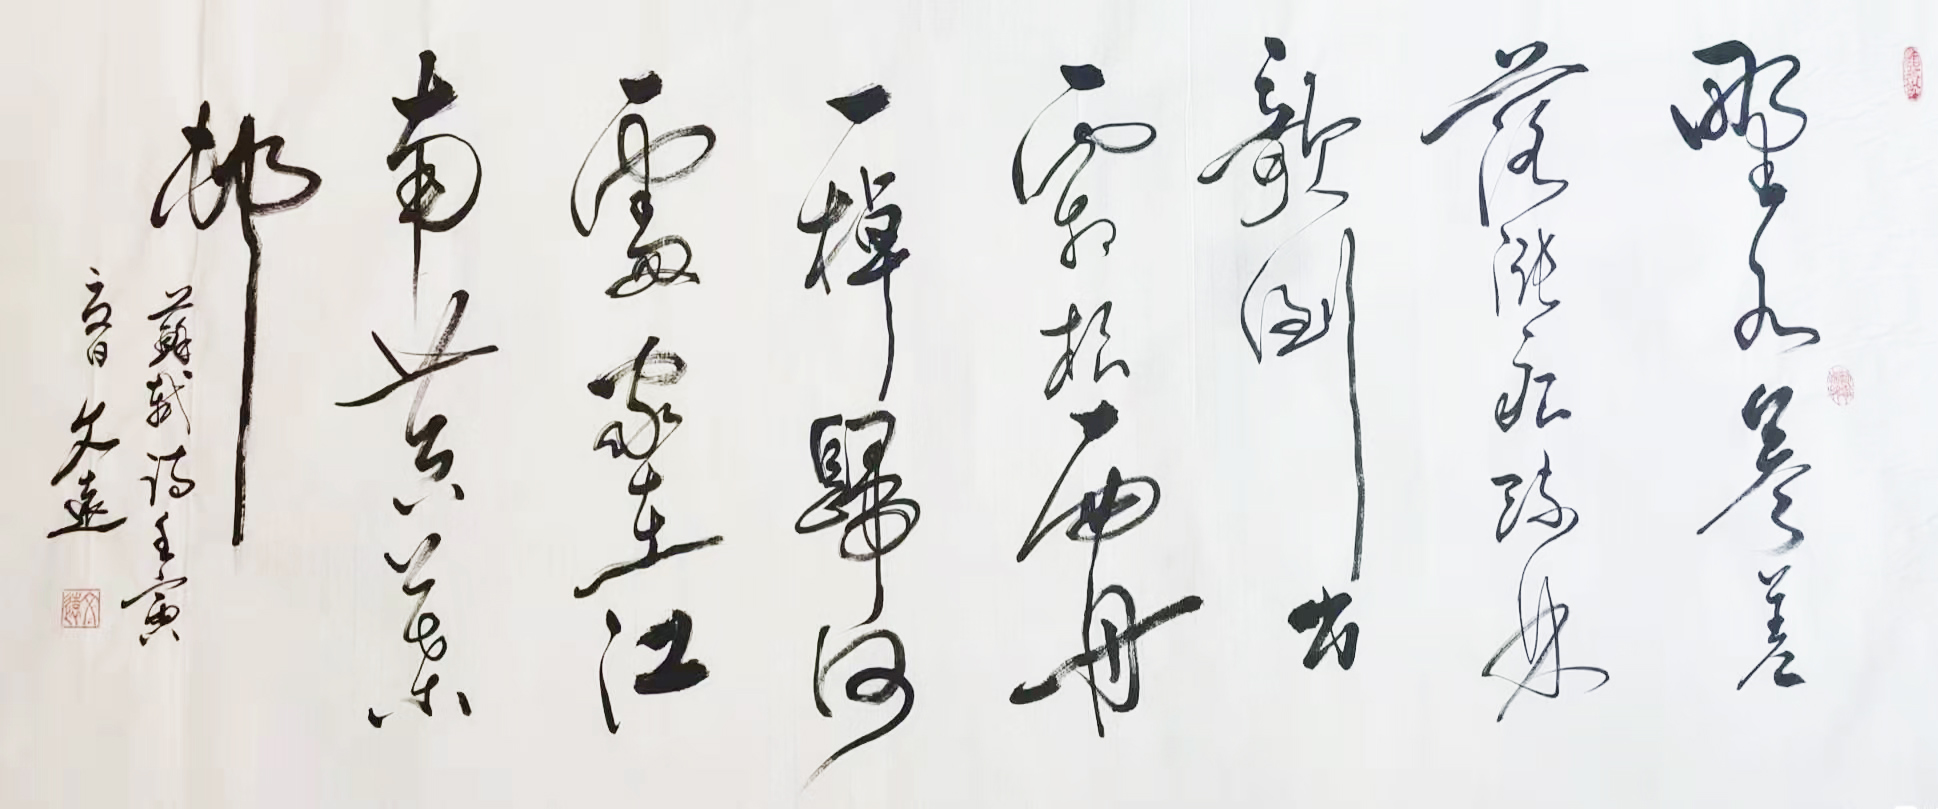 野水參差
落漲痕疏林
欹倒出
霜根扁舟
一棹歸何
處家在江
南黃葉
邨
蘇軾詩壬寅
夏日文遠
文遠